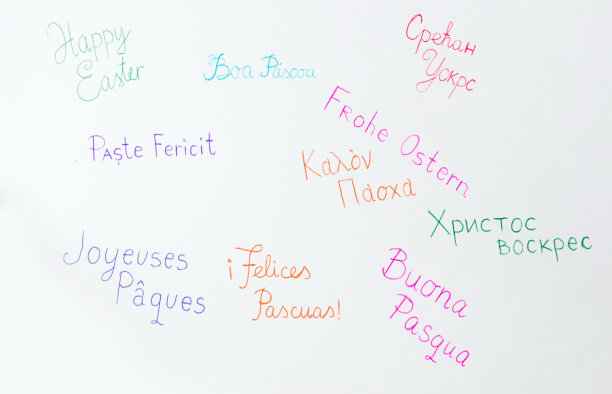 Happy
Easter
Boa Páscoa
Срећан
Ускрс
Frohe Ostern
Paşte Fericit
Καλὸν
Πάσχα
Христос
воскрес
Joyeuses
Pâques
¡Felices
Pascuas!
Buona
Pasqua